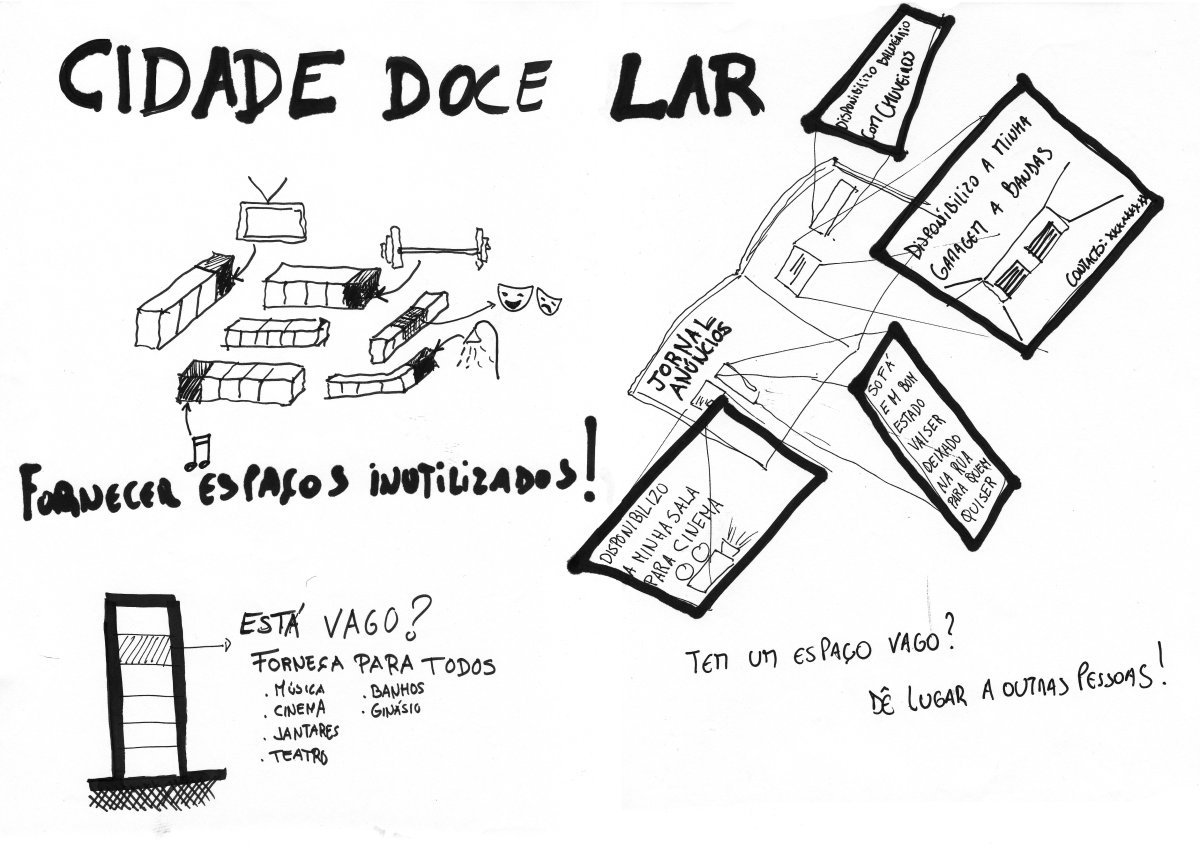 CIDADE DOCE LAR
FORNECER ESPAÇOS INUTILIZADOS!
ESTÁ VAGO?
FORNEÇA PARA TODOS
. MÚSICA
. CINEMA
. JANTARES
. TEATRO
. BANHOS
. GINÁSIO
DISPONIBILIZO BALNEÁRIO
COM CHUVEIROS
DISPONIBILIZO A MINHA
GARAGEM A BANDAS
CONTACTO:
JORNAL
ANÚNCIOS
SOFÁ
EM BOM
ESTADO
VAI SER
DEIXADO
NA RUA
PARA QUEM
QUISER
DISPONIBILIZO
A MINHA SALA
PARA CINEMA
TEM UM ESPAÇO VAGO?
DÊ LUGAR A OUTRAS PESSOAS!